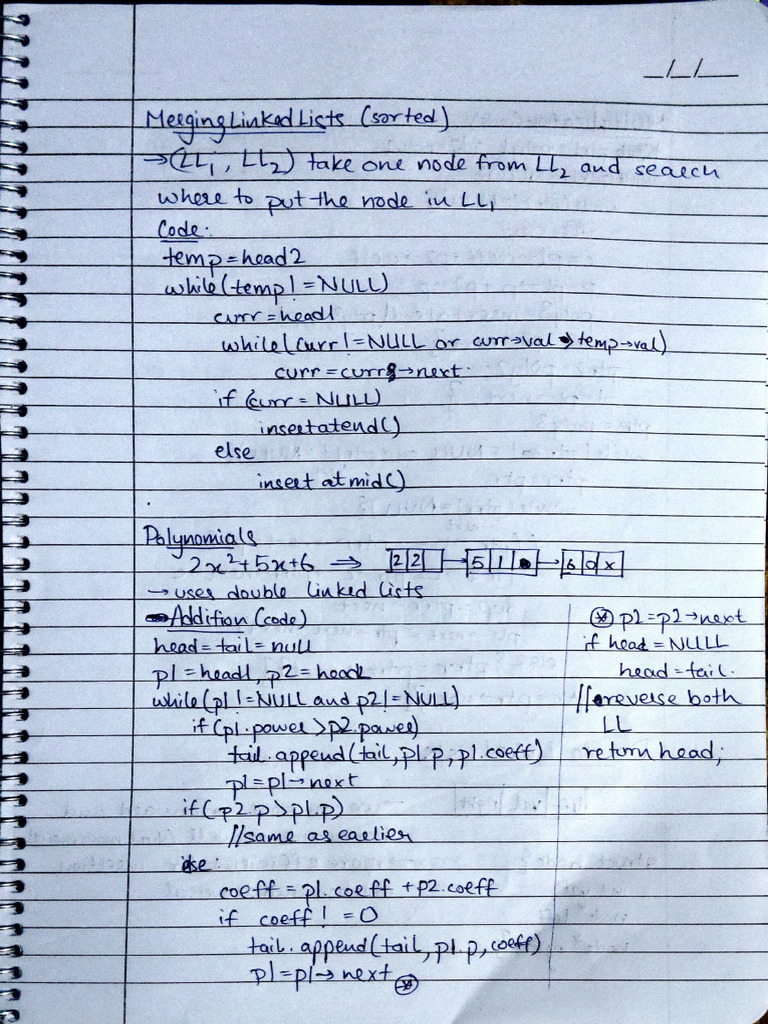 _/_/__
Merging Linked Lists (sorted)
→ (LL₁, LL₂) take one node from LL₂ and search
where to put the node in LL₁
Code:
temp = head2
while(temp! = NULL)
curr = head1
while(curr! = NULL or curr→val > temp→val)
curr = curr→next.
if (curr = NULL)
insertatend()
else
insert atmid()
Polynomials
2x² + 5x + 6 ⇒ 2 2 → 5 1 → 6 0 x
→ uses double linked lists
Addition (code)
head = tail = null
p1 = head1, p2 = head2
while(p1! = NULL and p2! = NULL)
if (p1.power > p2.power)
tail.append(tail, p1.p, p1.coeff)
p1 = p1→next
if (p2.p > p1.p)
//same as earlier
else:
coeff = p1.coeff + p2.coeff
if coeff! = 0
tail.append(tail, p1.p, coeff)
p1 = p1→next ⊛
⊛ p2 = p2→next
if head = NULL
head = tail.
//reverse both
LL
return head;